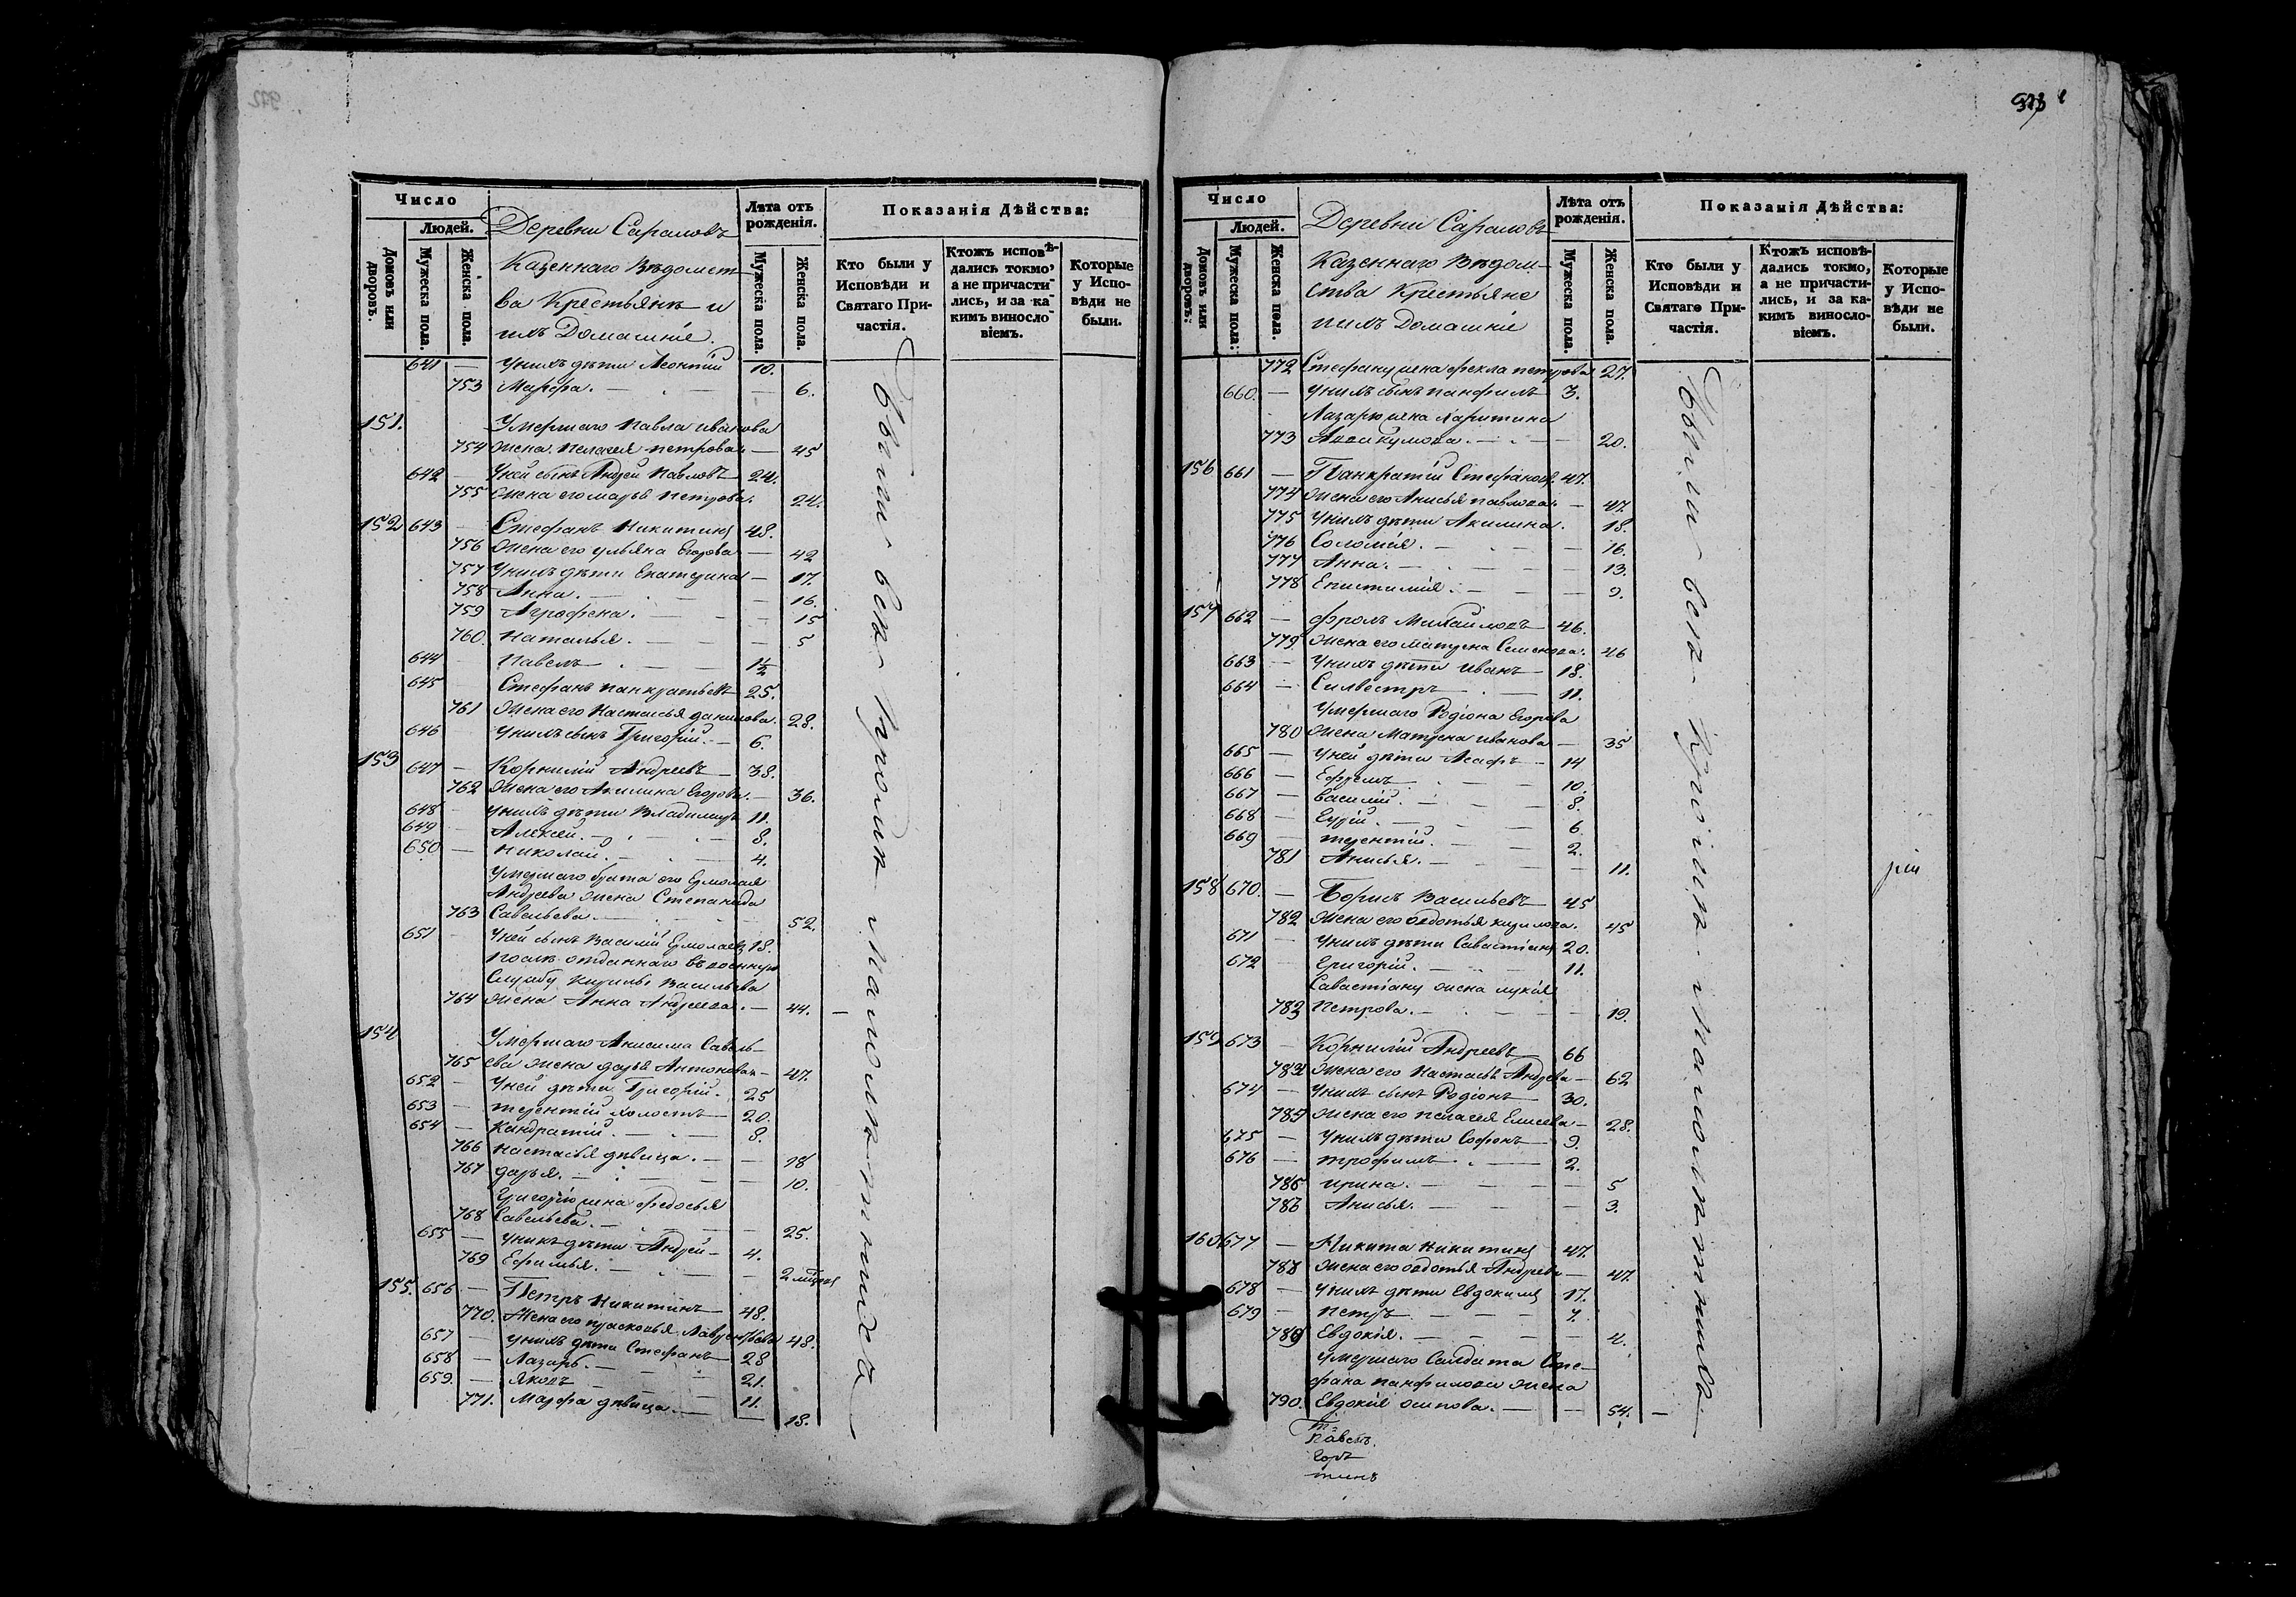 Число
Людей.
Домовъ или дворовъ.
Мужеска пола.
Женска пола.
Деревни Сарамовъ
Казеннаго Вѣдомст
ва Крестьянѣ и
ихъ Домашніе.
Лѣта отъ рожденія.
Мужеска пола.
Женска пола.
Показанія Дѣйства:
Кто были у Исповѣди и Святаго Причастія.
Ктожъ исповѣдались токмо, а не причастились, и за какимъ винословіемъ.
Которые у Исповѣди не были.
641 — Унихъ дѣти Леонтій 10.
753 Марфа. — — 6.
151. Умершаго Павла Иванова
754 Жена Пелагея Петрова — 45
642 — Уней сынъ Андрей Павловъ 24.
755 Жена его Марья Петрова. 24.
152 643 — Стефанъ Никитинъ 48.
756 Жена его Ульяна Егорова — 42
757 Унихъ дѣти Екатерина — 17.
758 Анна. — — 16.
759 Агрофена. — — 15
760. Наталья. — — 5
644 — Павелъ — 1½
645 Стефанъ Панкратьевъ 25.
761 Жена его Настасья Данилова. 28.
646 Унихъ сынъ Григорій. — 6.
153 647 — Корнилій Андреевъ — 38.
762 Жена его Акилина Егорова. — 36.
648 — Унихъ дѣти Владимиръ 11.
649 — Алексей. — 8.
650 — Николай. — 4.
Умершаго брата его Ермолая
Андреева жена Степанида
763 Савельева. — 52.
651 — Уней сынъ Василій Ермолаевъ 18.
отданнаго въ военную
Службу Кирилы Васильева
764 Жена Анна Андреева. — 44. —
154 Умершаго Анисима Савель-
765 ева жена Дарья Антонова — 47.
652 — Уней дѣти Григорій. 25
653 — Терентій холостъ 20.
654 — Кандратій. — 8.
766 Настасья дѣвица. — 18
767 Дарья. — — 10.
Григорію жена Федосья
768 Савельева. — — 25.
655 — Унихъ дѣти Андрей — 4.
769 Ефимья. — — 2
155. 656 — Петръ Никитинъ — 48.
770. Жена его Прасковья Лаврентьева 48.
657 — Унихъ дѣти Стефанъ — 28
658 — Лазарь. — 21.
659. — Яковъ — 11.
771. Марфа дѣвица. — — 18.
Были вси кроме малолетнихъ
Число
Людей.
Домовъ или дворовъ:
Мужеска пола:
Женска пола.
Деревни Сарамовъ
Казеннаго Вѣдом-
ства Крестьяне
иихъ Домашніе
Лѣта отъ рожденія.
Мужеска пола.
Женска пола.
Показанія Дѣйства:
Кто были у Исповѣди и Святаго Причастія.
Ктожъ исповѣдались токмо, а не причастились, и за какимъ винословіемъ.
Которые у Исповѣди не были.
772 Стефану жена Фекла Петрова 27.
660. — Унихъ сынъ Панфилъ 3.
Лазарю жена Харитина
773 — 20.
156 661 — Панкратій Стефановъ 47.
774 Жена его Анисья Павлова. — 47.
775 Унихъ дѣти Акилина. 18.
776 Соломія. — — 16.
777 Анна. — — 13.
778 Епистимія. — — 9.
157 662 — Фролъ Михайловъ 46.
779 Жена его Матрена Семенова. 46
663 — Унихъ дѣти Иванъ — 18.
664 — Силвестръ — 11.
Умершаго Родіона Егорова
780 Жена Матрена Иванова — 35
665 — Уней дѣти Асафъ — 14
666 — Ефремъ 10.
667 — Василій. 8.
668 — 6.
669 — Терентій. 2.
781 Анисья. — — 11.
158 670. — Борисъ Васильевъ 45
782 Жена его Федотья Кирилова. 45
671 — Унихъ дѣти Савастіанъ 20.
672 — Григорій. — 11.
Савастіану жена Лукія
783 Петрова. — — 19.
159 673 — Корнилій Андреевъ 66
784 Жена его Настасья Андрева — 62
674 — Унихъ сынъ Родіонъ 30.
785 Жена его Пелагея Елисева — 28.
675 — Унихъ дѣти Софонъ 9.
676 — Трофимъ — 2.
786 Ирина. — — 5
787 Анисья. — — 3.
160 677 — Никита Никитинъ 47.
788 Жена его Федотья Андрева — 47.
678 — Унихъ дѣти Евдокимъ 17.
679 — Петръ — 7.
789 Евдокія. — — 4.
Умершаго Салдата Сте-
фана Панфилова жена
790. Евдокія Осипова. — — 54. —
Были вси кроме малолетнихъ